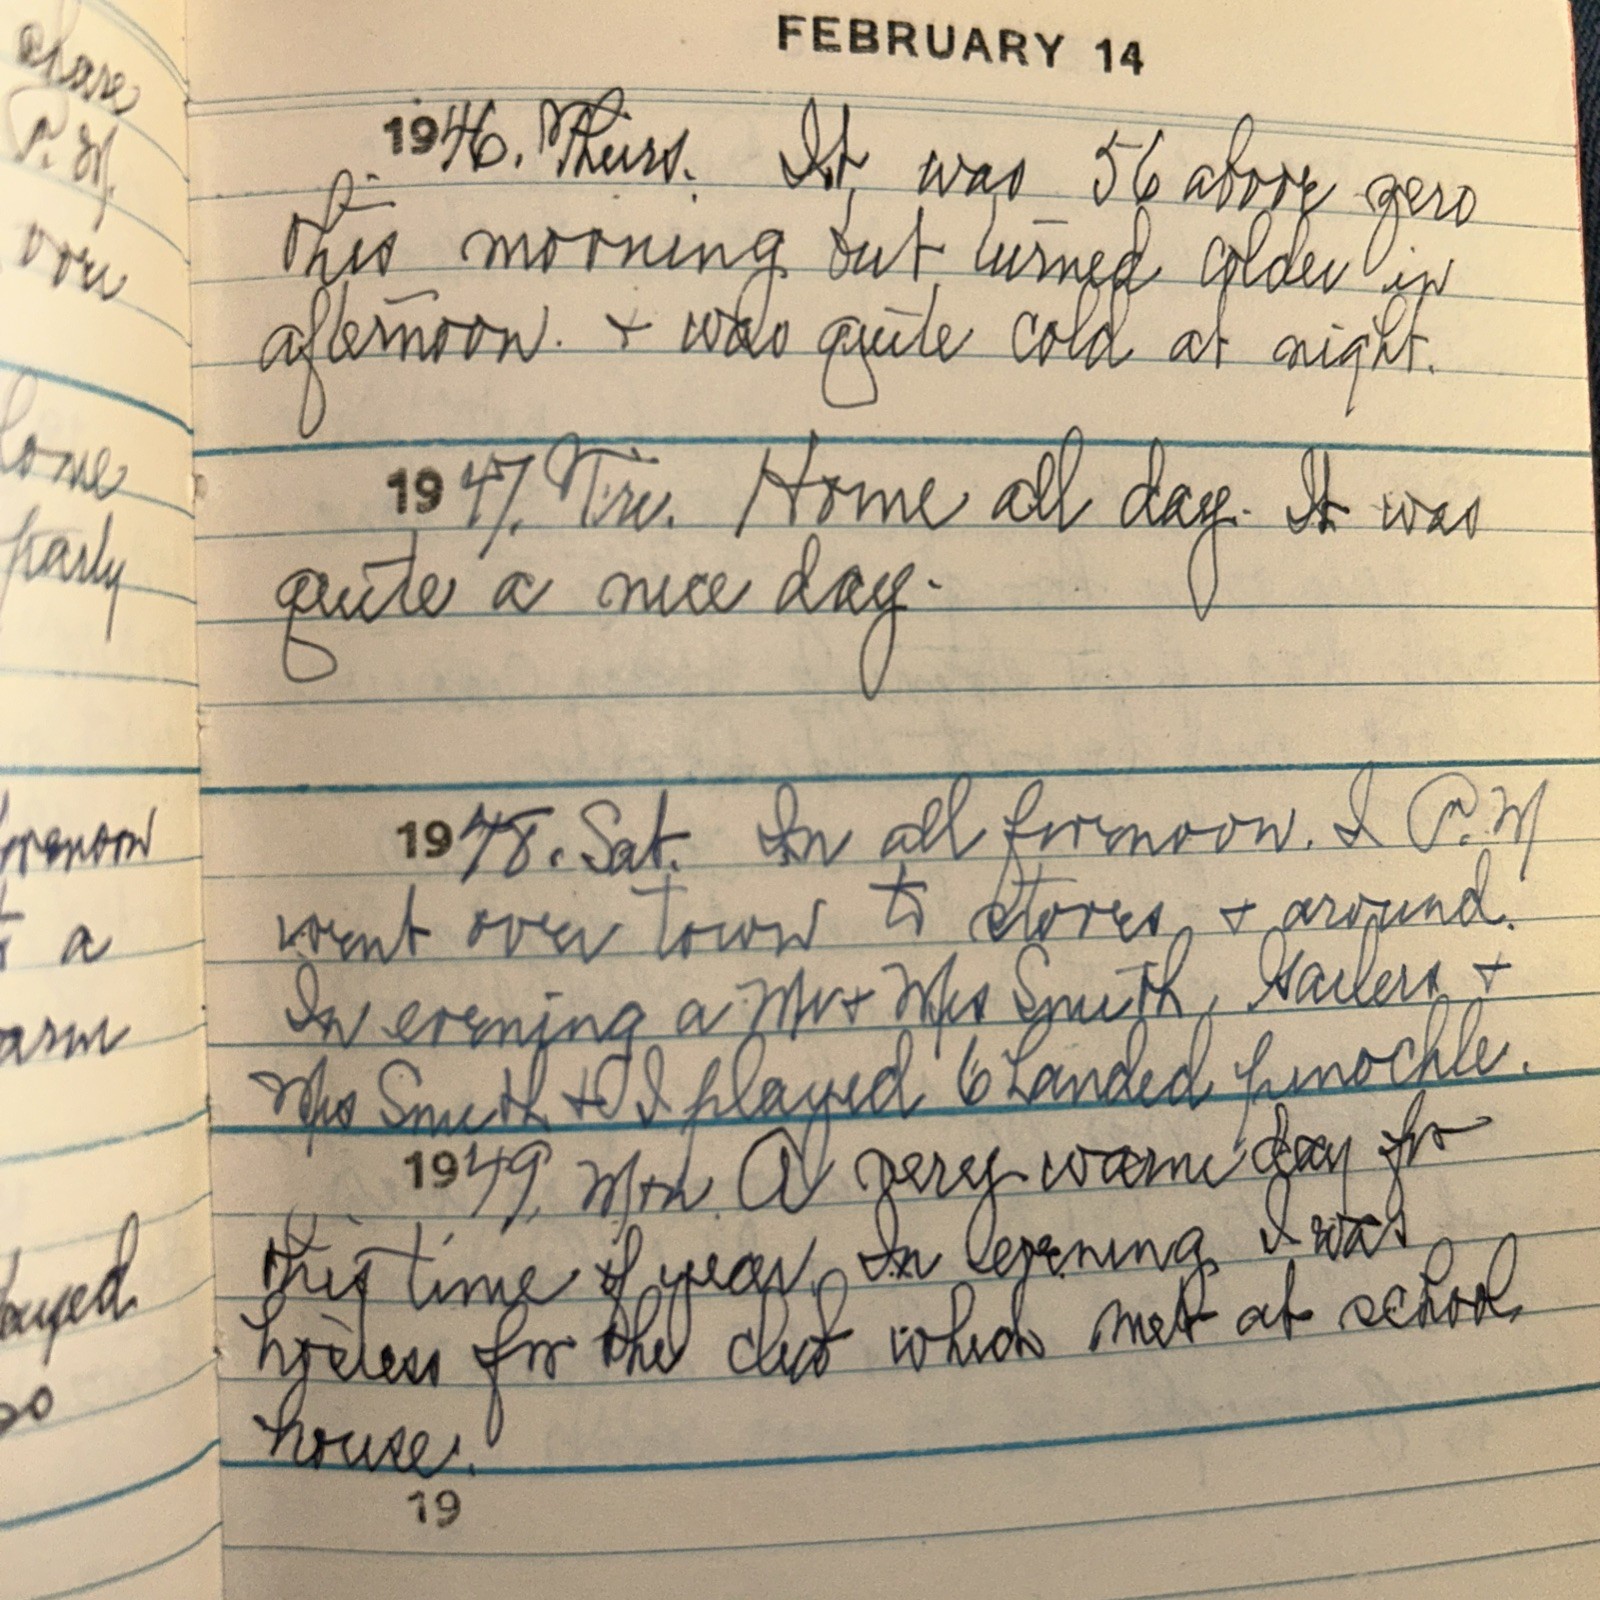 share
P. M.
over
home
party
forenoon
a
warm
played
so
FEBRUARY 14
1946. Thurs. It was 56 above zero
this morning but turned colder in
afternoon. + was quite cold at night.
1947. Fri. Home all day. It was
quite a nice day.
1948. Sat. In all forenoon. I P.M
went over town to stores + around.
In evening a Mr + Mrs Smith, +
Mrs Smith + I played 6 handed pinochle.
1949, Mon. A very warm day for
this time of year. In evening I was
hostess for the club which met at school
house.
19